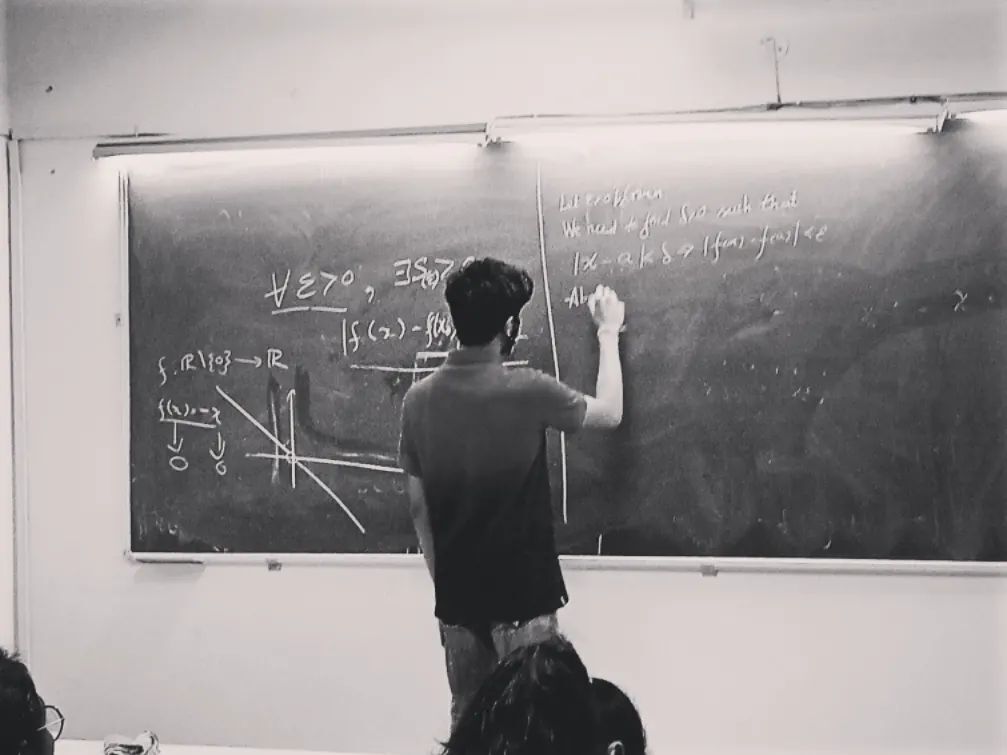 ∀ ε>0, ∃δ
|f(x) - f(x
f: ℝ\{0} → ℝ
f(x) = -x
↓ ↓
0 0
Let ε>0 be given
We need to find δ>0 such that
|x - a| < δ ⇒ |f(x) - f(a)| < ε